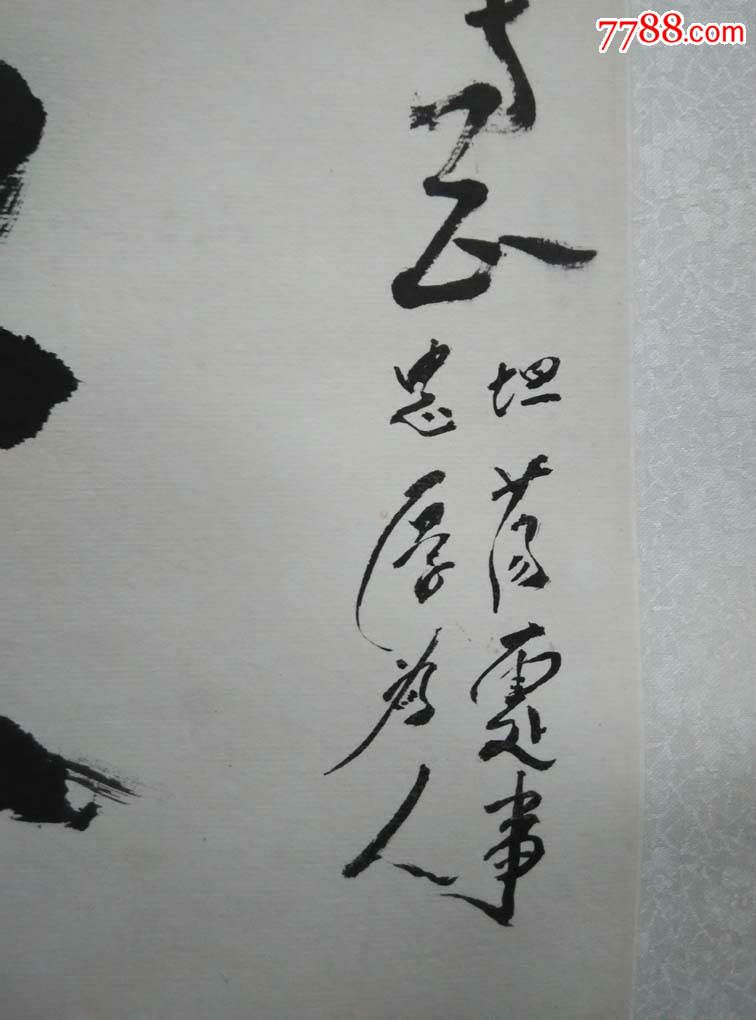 7788.com
坦荡處事
忠厚为人